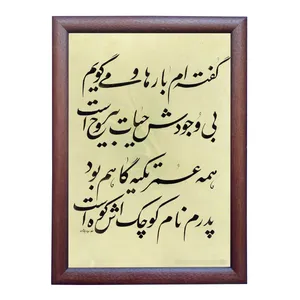 گفته ام بارها و می گویم
بی وجودش حیات بیروح است
همه عمر تکیه گاهم بود
پدرم نام کوچک اش کوه است